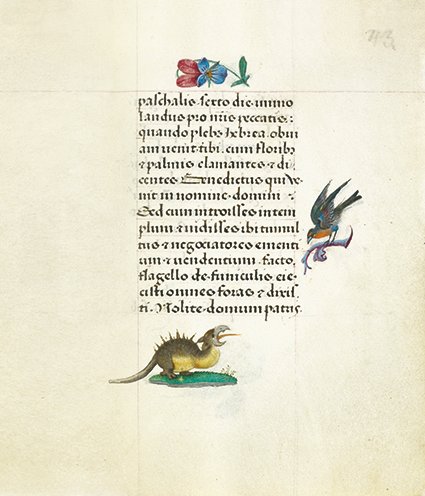 paschalis sexto die immo
landus pro n̄is peccatis :
quando plebs hebrea obui
am uenit tibi. cum florib⁹
& palmis clamantes & di
centes Benedictus qui ve
nit in nomine domini :
Sed cum introisses in tem
plum & uidisses ibi tumul
tus & negociatores ementi
um & uendentium facto
flagello de funiculis eie
cisti omnes foras & dixis
ti. Nolite domum patris